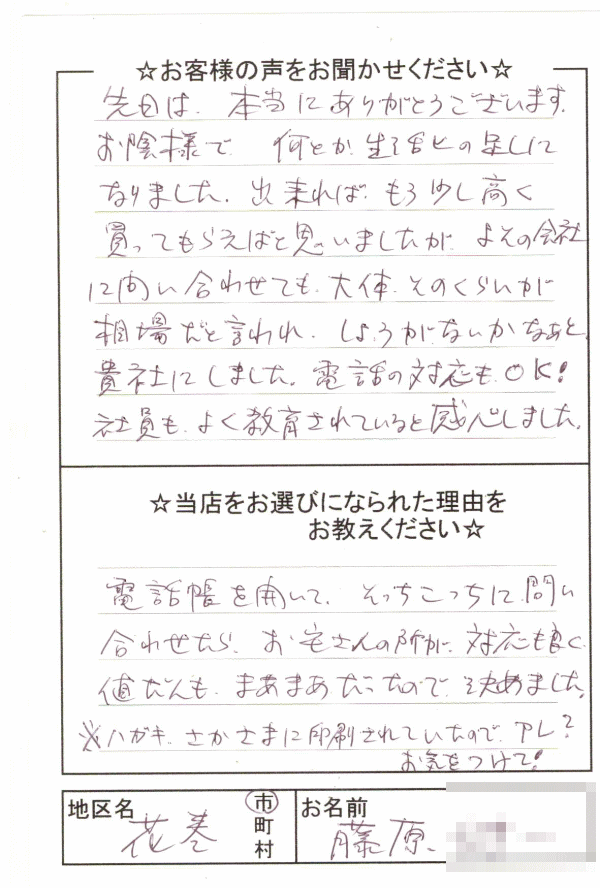 ☆お客様の声をお聞かせください☆
先日は、本当にありがとうございます。
お陰様で、何とか生活ヒの足しに
なりました。出来れば、もう少し高く
買ってもらえばと思いましたが、よその会社
に問い合わせても、大体、そのくらいが
相場だと言われ、しょうがないかなぁと、
貴社にしました。電話の対応もOK!
社員も、よく教育されていると感心しました。
☆当店をお選びになられた理由を
お教えください☆
電話帳を開いて、そっちこっちに問い
合わせたら、お宅さんの所が、対応も良く、
値だんも、まあまあだったので、決めました。
※ハガキ、さかさまに印刷されていたので、アレ?
お気をつけて!
地区名 花巻 市
町
村
お名前 藤原